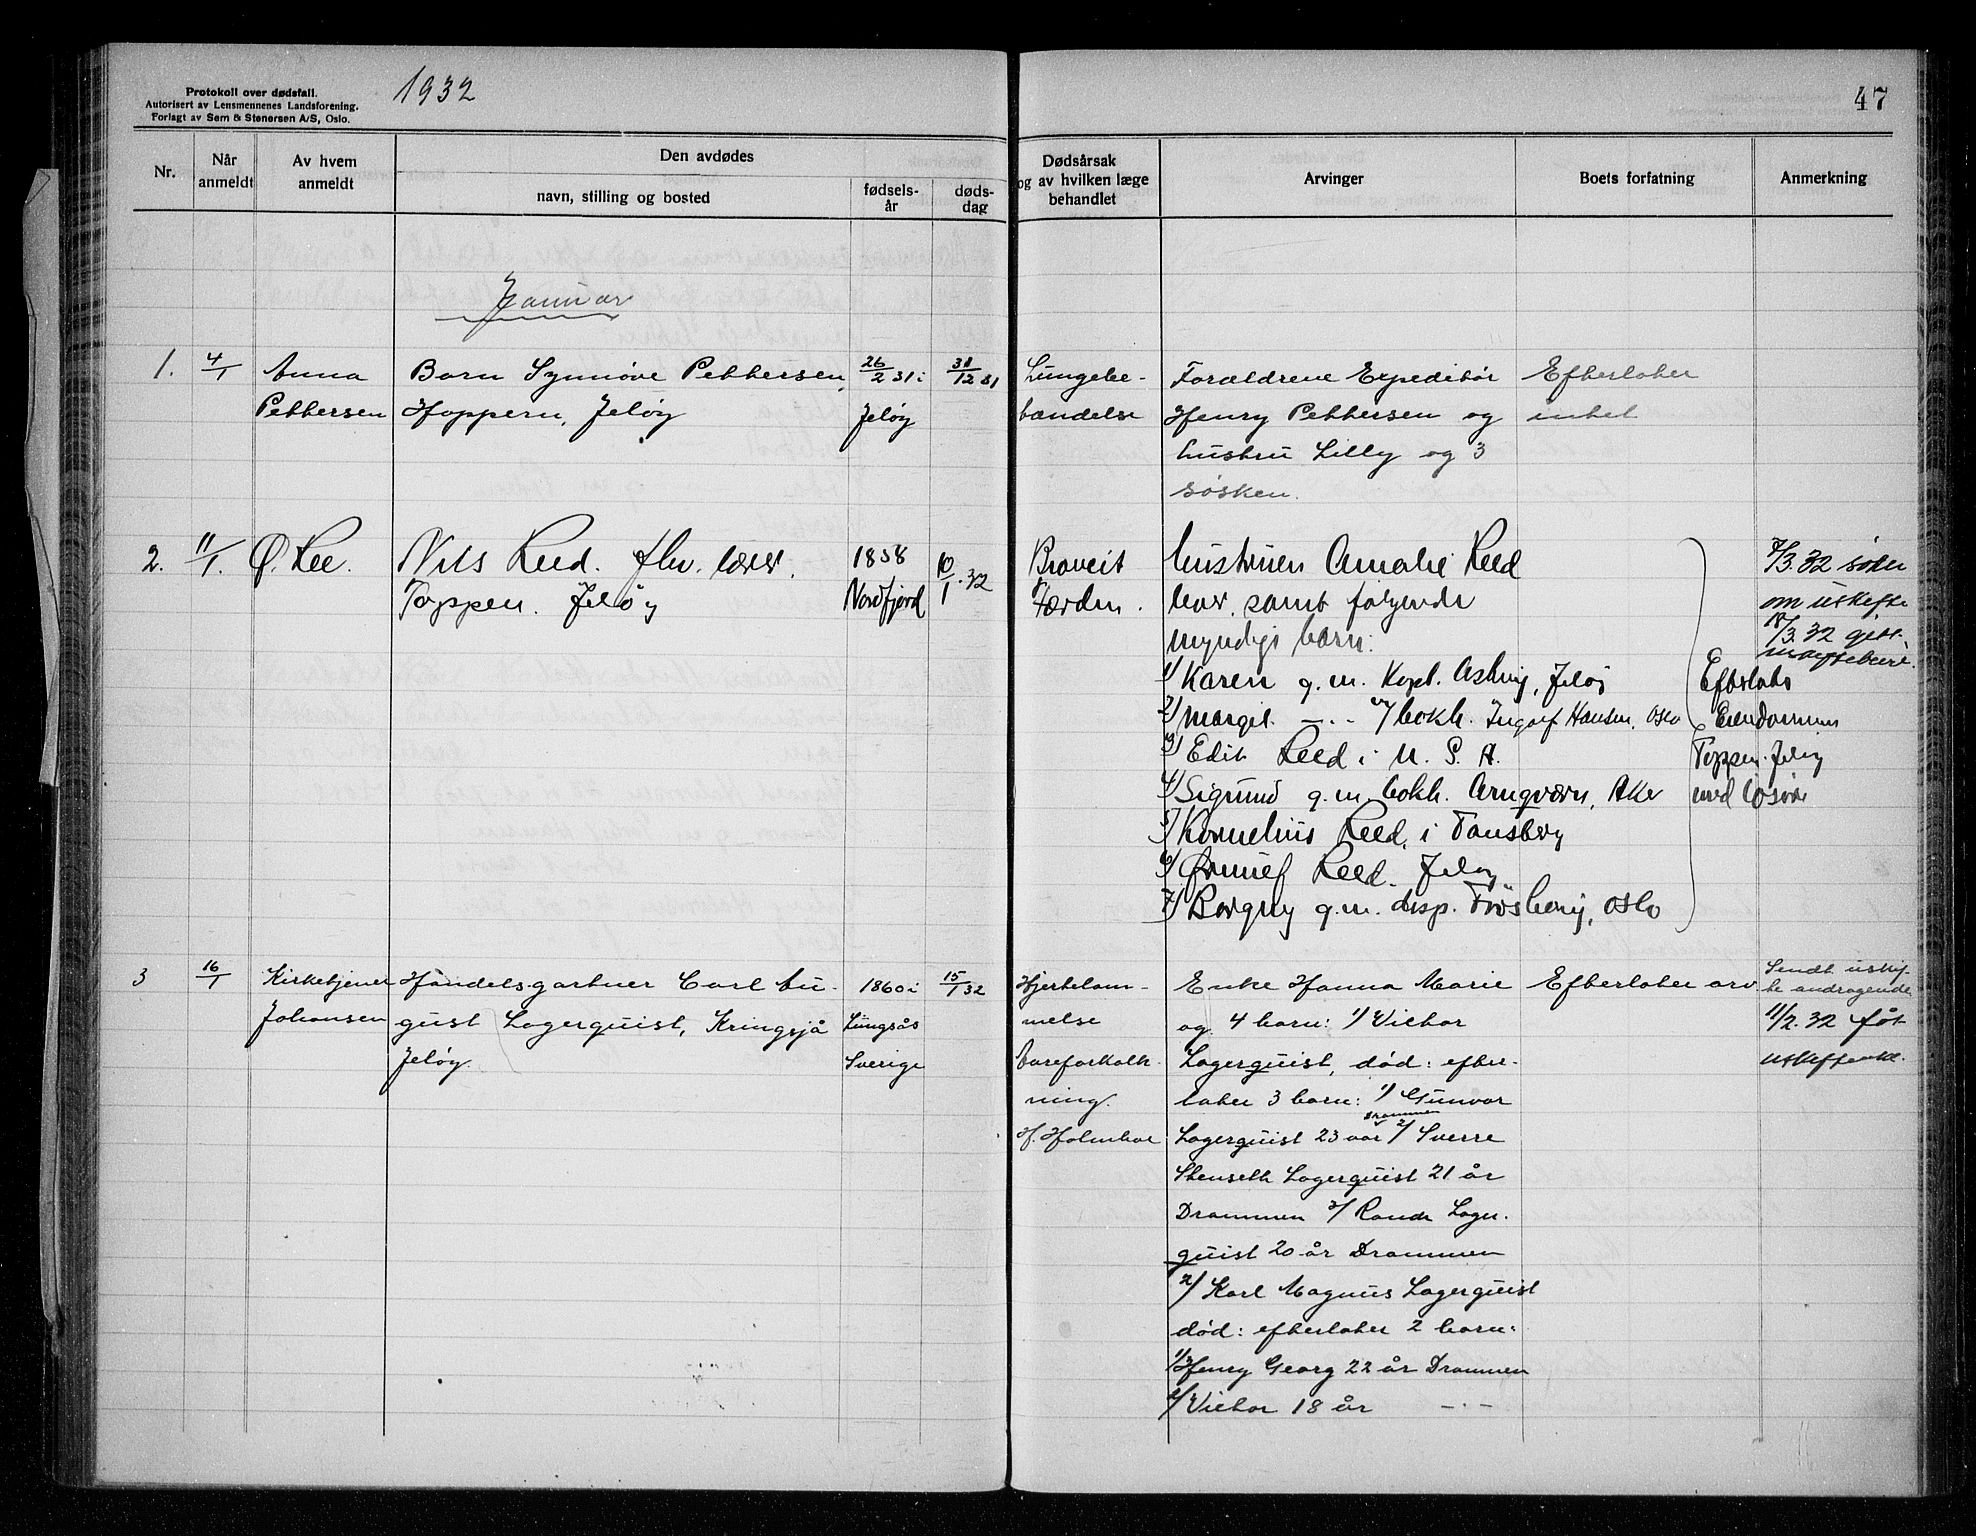 Protokoll over dødsfall.
Autorisert av Lensmennenes Landsforening.
Forlagt av Sem & Stenersen A/S, Oslo.
1932
47
Nr.
Når anmeldt
Av hvem anmeldt
Den avdødes
navn, stilling og bosted
fødsels-år
døds-dag
Dødsårsak og av hvilken læge behandlet
Arvinger
Boets forfatning
Anmerkning
Januar
1.
4/1
Anna
Pettersen
Barn Synnøve Pettersen,
Hoppern, Jeløy
26/2 31 i
Jeløy
31/12 31
Lungebe-
tændelse
Forældrene Expeditør
Henry Pettersen og
hustru Lilly og 3
søsken.
Efterlater
intet
2.
11/1.
Ø. Lee.
Nils Reed. fhv. lærer.
Toppen. Jeløy
1858
Nordfjord
10/1. 32
hustruen Amalie Reed
samt følgende
myndige barn:
1) Karen g.m. Kapt. Jeløy
2) Margit – . – bokh. Ingolf Hansen, Oslo
3) Edit Reed i U. S. A.
4) Sigrund g.m. bokh. Arnqværn, Aker
5) Kornelius Reed, i Tønsberg
6) Ørnulf Reed. Jeløy
7) Borgny g.m. disp. Frösberg, Oslo
Efterlots
Eiendommen
Toppen. Jeløy
med løsøre
7/3.32 søker
om uskifte
18/3.32
3
16/1
Kirketjener
Johansen
Handelsgartner Carl Au-
gust Lagerquist, Kringsjå
Jeløy.
1860 i
Lungsås
Sverige
15/1 32
Hjertelam-
melse
åreforkalk-
ning.
H. Holmboe
Enke Hanna Marie
og 4 barn: 1/ Victor
Lagerquist, død: efter-
later 3 barn: 1/ Gunvor
Drammen
Lagerquist 23 aar 2/ Sverre
Stenseth Lagerquist 21 år
Drammen 3/ Randi Lager-
quist 20 år Drammen
2/ Karl Magnus Lagerquist
død: efterlater 2 barn:
1/ Henry Georg 22 år Drammen
2/ Victor 18 år – . –
Efterlater arv
Sendt uskif-
te andragende
11/2.32 fåt